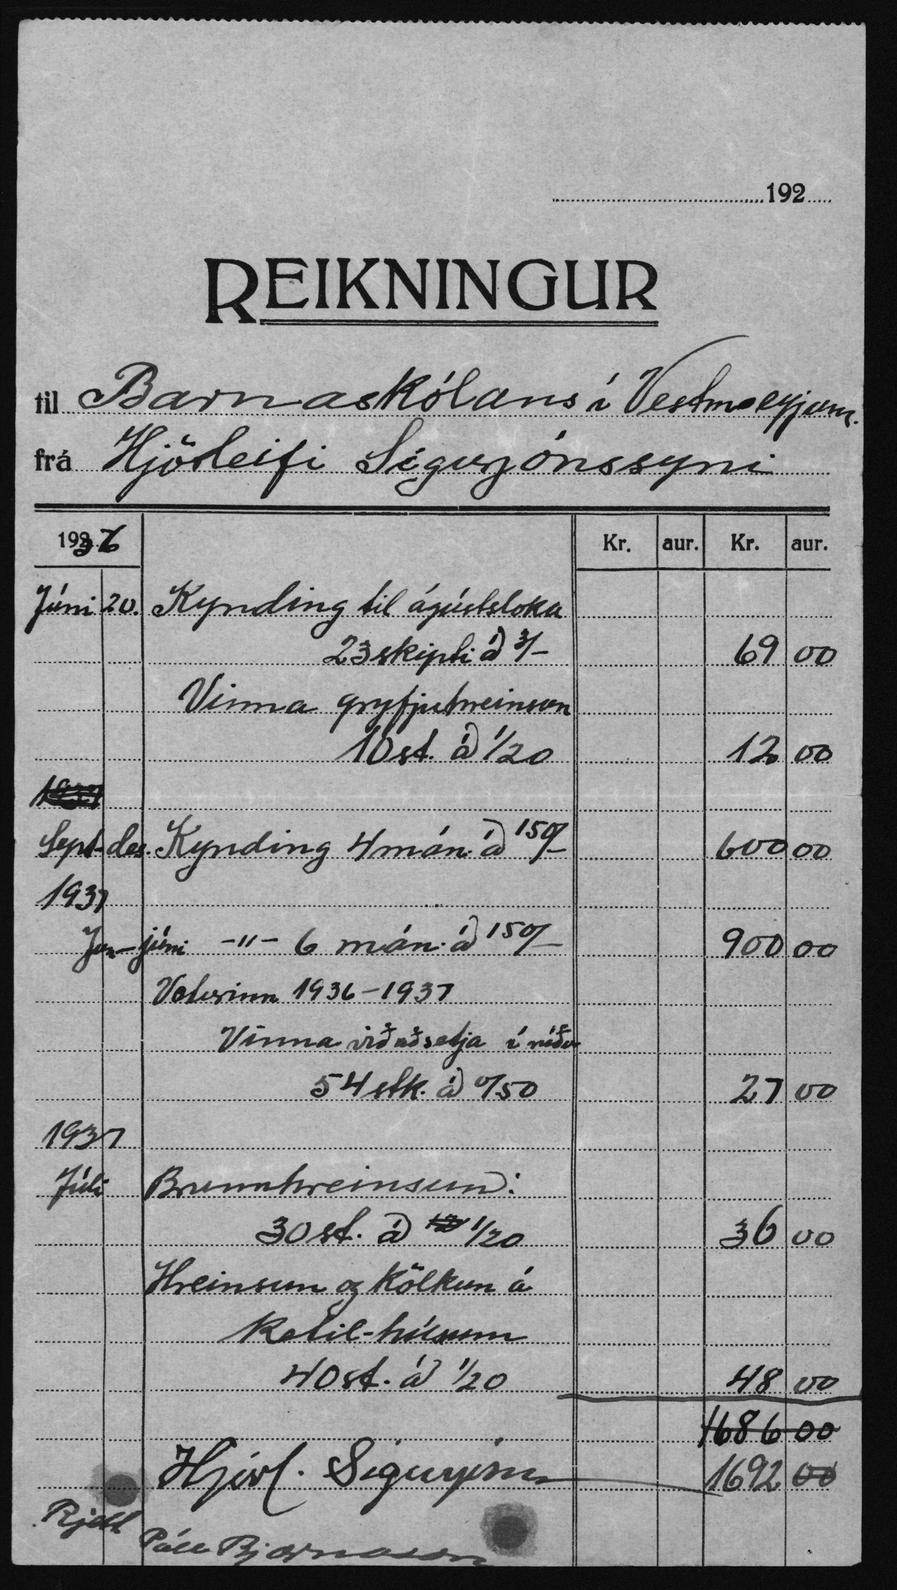 192
REIKNINGUR
til Barnaskólans í Vestmeyjum.
frá Hjörleifi Sigurjónssyni
1936 Kr. aur. Kr. aur.
Júní 20. Kynding til ágústsloka
23 skipti á 3/- 69 00
Vinna gryfjuhreinsun
10 st. á 1/20 12 00
Sept-des. Kynding 4 mán. á 150/- 600 00
1937
Jan-júní -"- 6 mán. á 150/- 900 00
Veturinn 1936-1937
Vinna við að setja í rúður
54 stk. á 0/50 27 00
1937
Júlí Brunnhreinsun:
30 st. á 1/20 36 00
Hreinsun og kölkun á
Ketil-húsum
40 st. á 1/20 48 00
1686 00
Hjörl. Sigurjónss 1692 00
Rjett
Páll Bjarnason